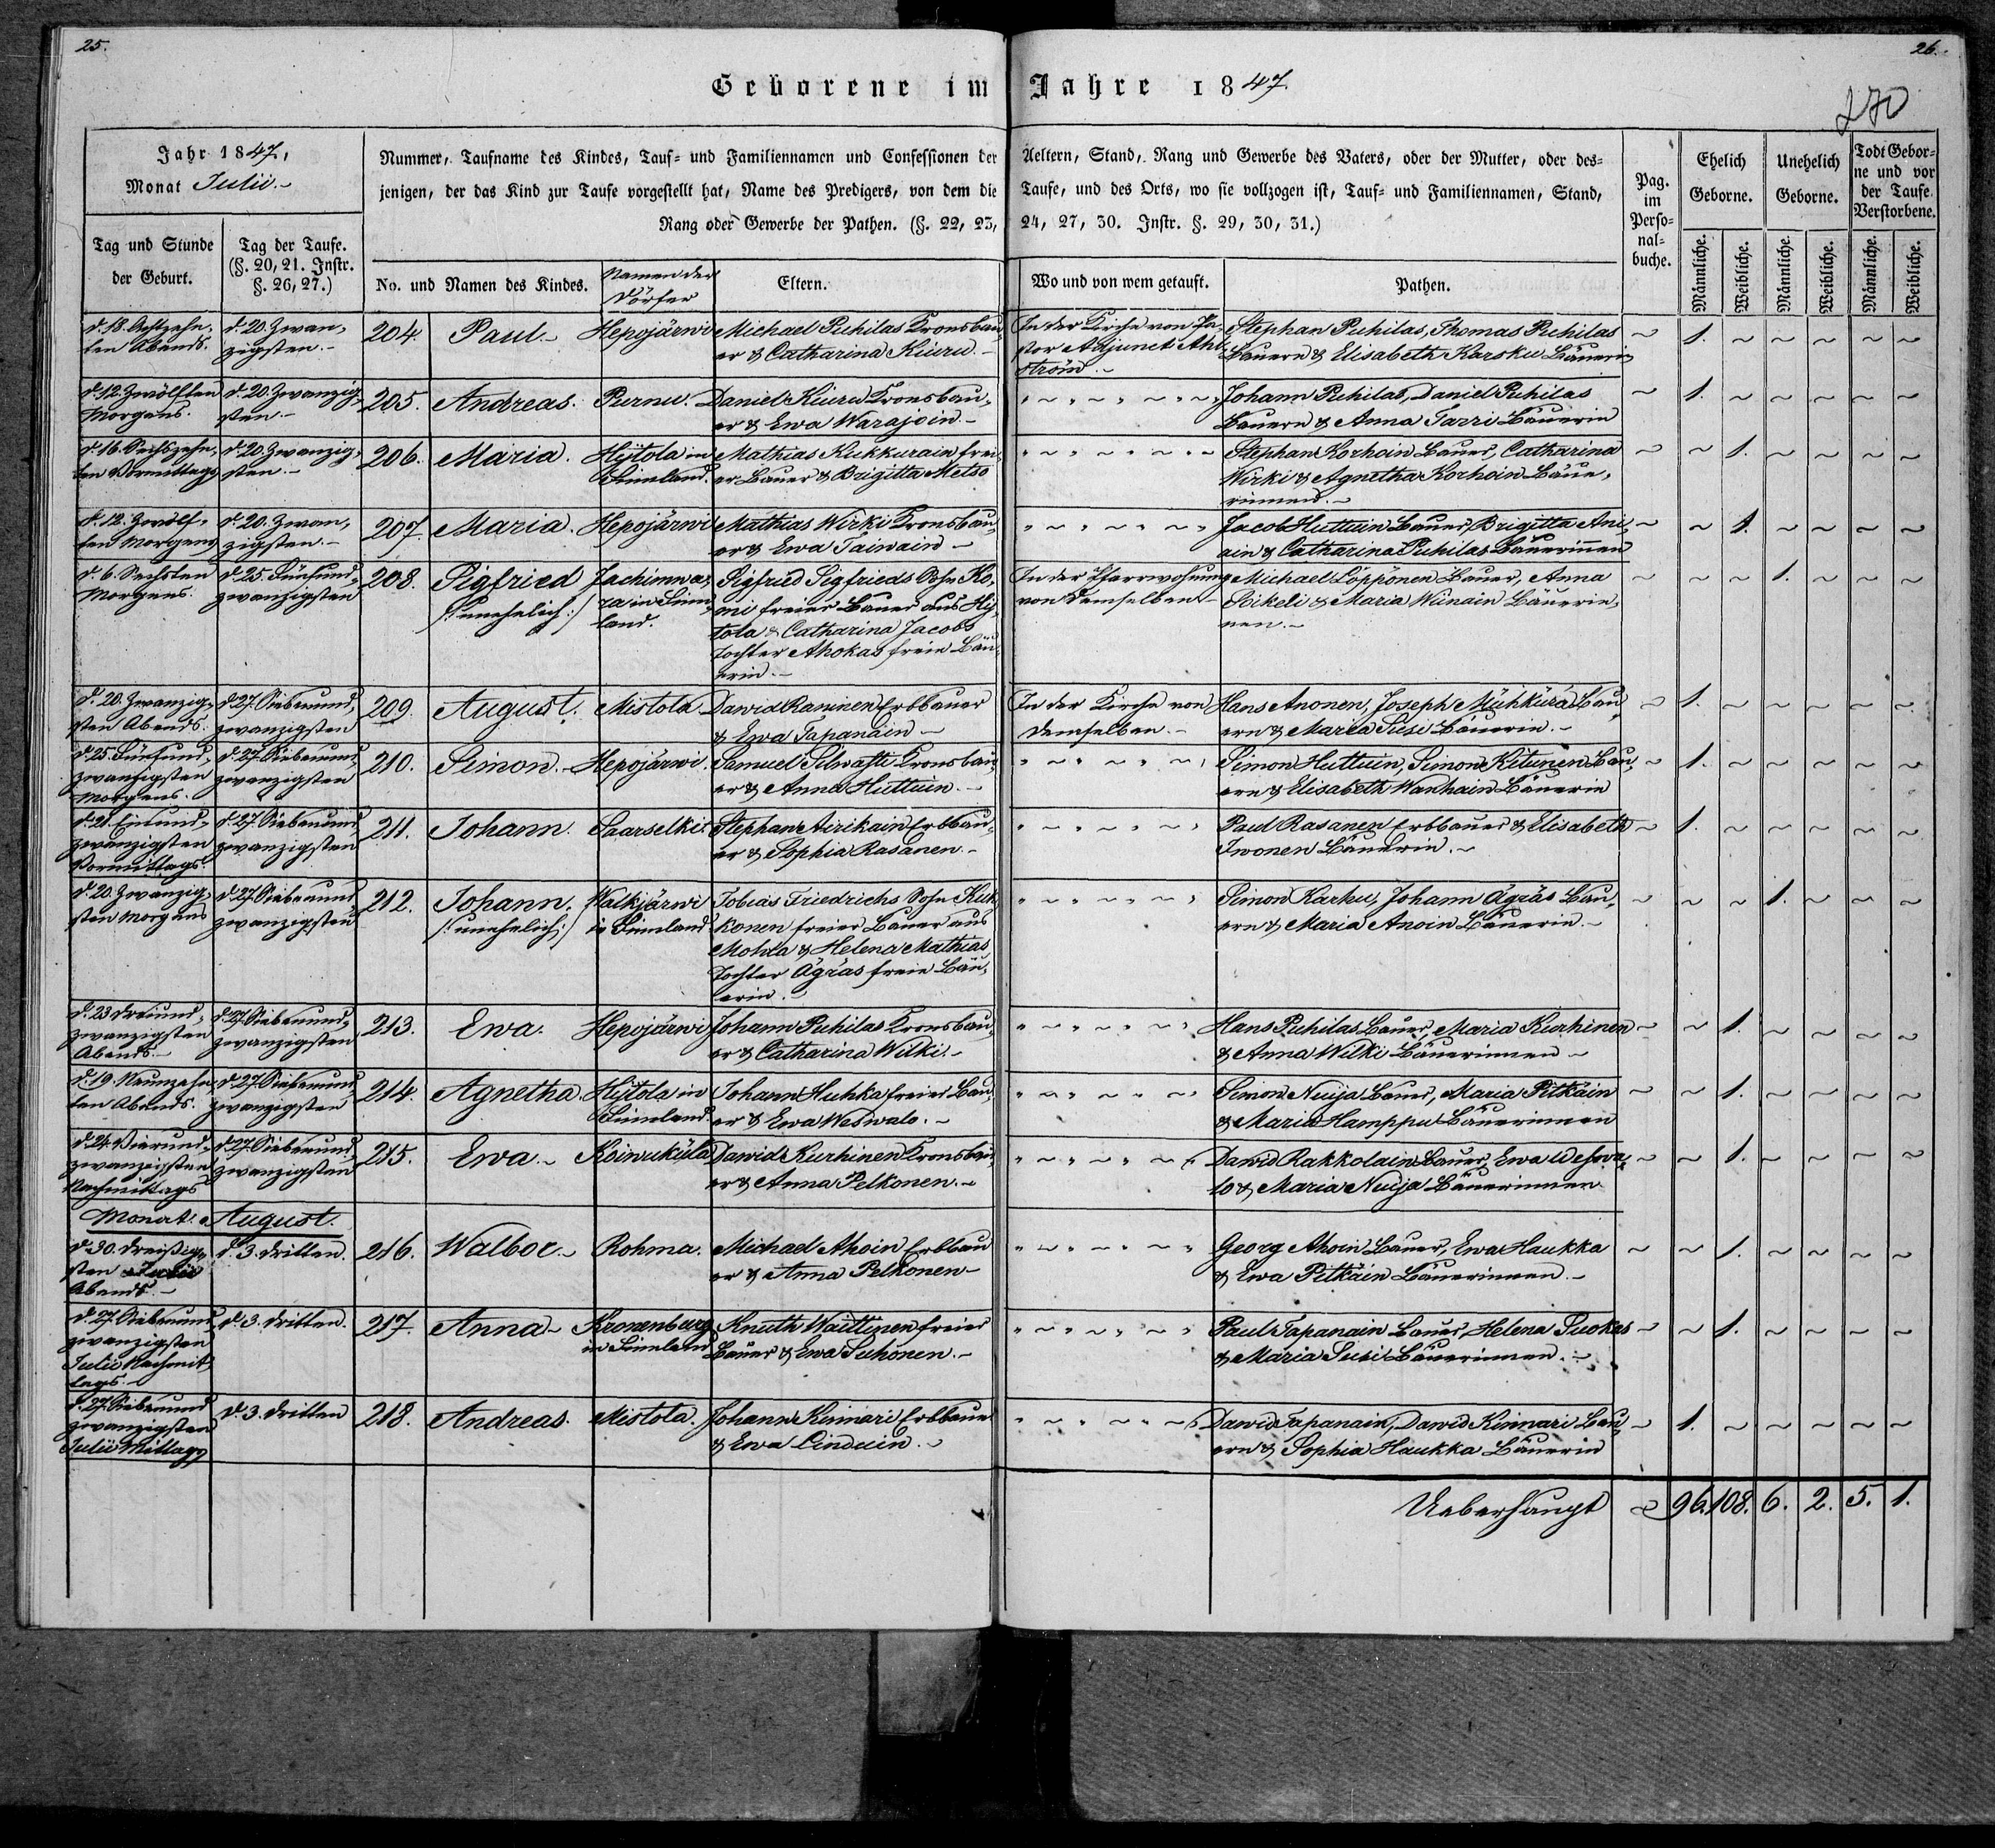 25.
26.
Geborene im Jahre 1847.
270
Jahr 1847,
Monat Julii.
Tag und Stunde der Geburt.
Tag der Taufe. (§. 20, 21. Instr. §. 26, 27.)
Nummer, Taufname des Kindes, Tauf- und Familiennamen und Confessionen der Aeltern, Stand, Rang und Gewerbe des Vaters, oder der Mutter, oder des-
jenigen, der das Kind zur Taufe vorgestellt hat, Name des Predigers, von dem die Taufe, und des Orts, wo sie vollzogen ist, Tauf- und Familiennamen, Stand,
Rang oder Gewerbe der Pathen. (§. 22, 23, 24, 27, 30. Instr. §. 29, 30, 31.)
No. und Namen des Kindes.
Namen der Dörfer
Eltern.
Wo und von wem getauft.
Pathen.
Pag. im Perso- nal- buche.
Ehelich Geborne.
Unehelich Geborne.
Todt Gebor- ne und vor der Taufe Verstorbene.
Männliche. Weibliche. Männliche. Weibliche. Männliche. Weibliche.
d. 18. Achtzehn-
ten Abends.
d. 20. Zwan-
zigsten.
204. Paul. Hepojärwi
Michael Puhilas Kronsbau-
er & Catharina Kiuru.
In der Kirche von Pa-
stor Adjunct Ahl-
ström.
Stephan Puhilas, Thomas Puhilas
Bauern & Elisabeth Karoku Bäuerin
1.
d. 12. Zwölften
Morgens.
d. 20. Zwanzig-
sten.
205. Andreas. Purnu.
Daniel Kiuru Kronsbau-
er & Ewa Warajoin.
Johann Puhilas, Daniel Puhilas
Bauern & Anna Tarri Bäuerin
1.
d. 16. Sechszehn-
ten Vormittags
d. 20. Zwanzig-
sten.
206. Maria. Hijtola in
Finnland.
Mathias Kukkurain frei-
er Bauer & Brigitta Metso
Stephan Korhoin Bauer, Catharina
Wirki & Agnetha Korhoin Bäue-
rinnen.
1.
d. 12. Zwölf-
ten Morgens
d. 20. Zwan-
zigsten.
207. Maria. Hepojärwi
Mathias Wirki Kronsbau-
er & Ewa Taiwain
Jacob Huttuin Bauer, Brigitta Ani-
ain & Catharina Puhilas Bäuerinnen
1.
d. 6. Sechsten
Morgens.
d. 25. Fünfund-
zwanzigsten
208. Sigfried
/: unehelich :/
Jachimwa-
ra in Finn-
land.
Sigfried Sigfrieds Sohn Ko-
mi freier Bauer aus Hij-
tola & Catharina Jacobs
Tochter Ahokas freie Bäu-
erin.
In der Pfarrwohnung
von Demselben
Michael Löppönen Bauer, Anna
Soikeli & Maria Wiinain Bäuerin-
nen.
1.
d. 20. Zwanzig-
sten Abends.
d. 27. Siebenund-
zwanzigsten
209. August. Mistola
Dawid Raninen Erbbauer
& Ewa Tapanain
In der Kirche von
Demselben.
Hans Anonen, Joseph Mühkürä Bau-
ern & Maria Susi Bäuerin.
1.
d. 25. Fünfund-
zwanzigsten
Morgens.
d. 27. Siebenund-
zwanzigsten
210. Simon. Hepojärwi.
Samuel Silwasti Kronsbau-
er & Anna Huttuin.
Simon Huttuin, Simon Kitunen Bau-
ern & Elisabeth Wanhain Bäuerin
1.
d. 21. Einund-
zwanzigsten
Vormittags.
d. 27. Siebenund-
zwanzigsten
211. Johann. Saarselki.
Stephan Airikain Erbbau-
er & Sophia Rasanen.
Paul Rasanen Erbbauer & Elisabeth
Iwonen Bäuerin.
1.
d. 20. Zwanzig-
sten Morgens
d. 27. Siebenund-
zwanzigsten
212. Johann.
/: unehelich :/
Walkjärwi
in Finnland
Tobias Friedrichs Sohn Kuk-
konen freier Bauer aus
Mohla & Helena Mathias
Tochter Ägräs freie Bäu-
erin.
Simon Karhu, Johann Ägräs Bau-
ern & Maria Anoin Bäuerin.
1.
d. 23. Dreiund-
zwanzigsten
Abends.
d. 27. Siebenund-
zwanzigsten
213. Ewa. Hepojärwi
Johann Puhilas Kronsbau-
er & Catharina Wilki.
Hans Puhilas Bauer, Maria Kurhinen
& Anna Wilki Bäuerinnen
1.
d. 19. Neunzehn-
ten Abends.
d. 27. Siebenund-
zwanzigsten
214. Agnetha. Hijtola in
Finnland.
Johann Huhka freier Bau-
er & Ewa Weswalo.
Simon Nuija Bauer, Maria Pitkäin
& Maria Hamppu Bäuerinnen
1.
d. 24. Vierund-
zwanzigsten
Nachmittags
d. 27. Siebenund-
zwanzigsten
215. Ewa. Koiwuküla
Dawid Kurhinen Kronsbau-
er & Anna Pelkonen.
Dawid Rakkolain Bauer, Ewa Weswa-
lo & Maria Nuija Bäuerinnen
1.
Monat August.
d. 30. Dreißig-
sten Julii
Abends.
d. 3. dritten.
216. Walbor. Rohma.
Michael Ahoin Erbbau-
er & Anna Pelkonen
Georg Ahoin Bauer, Ewa Haukka
& Ewa Pitkäin Bäuerinnen.
1.
d. 27. Siebenund-
zwanzigsten
Julii Nachmit-
tags.
d. 3. dritten.
217. Anna. Kronenburg
in Finnland
Knuth Waittinen freier
Bauer & Ewa Suhonen.
Paul Tapanain Bauer, Helena Suokas
& Maria Susi Bäuerinnen.
1.
d. 27. Siebenund
zwanzigsten
Julii Mittags
d. 3. dritten
218. Andreas. Mistola.
Johann Kinnari Erbbauer
& Ewa Linduin.
Dawid Tapanain, Dawid Kinnari Bau-
ern & Sophia Haukka Bäuerin
1.
Ueberhaupt 96. 108. 6. 2. 5. 1.